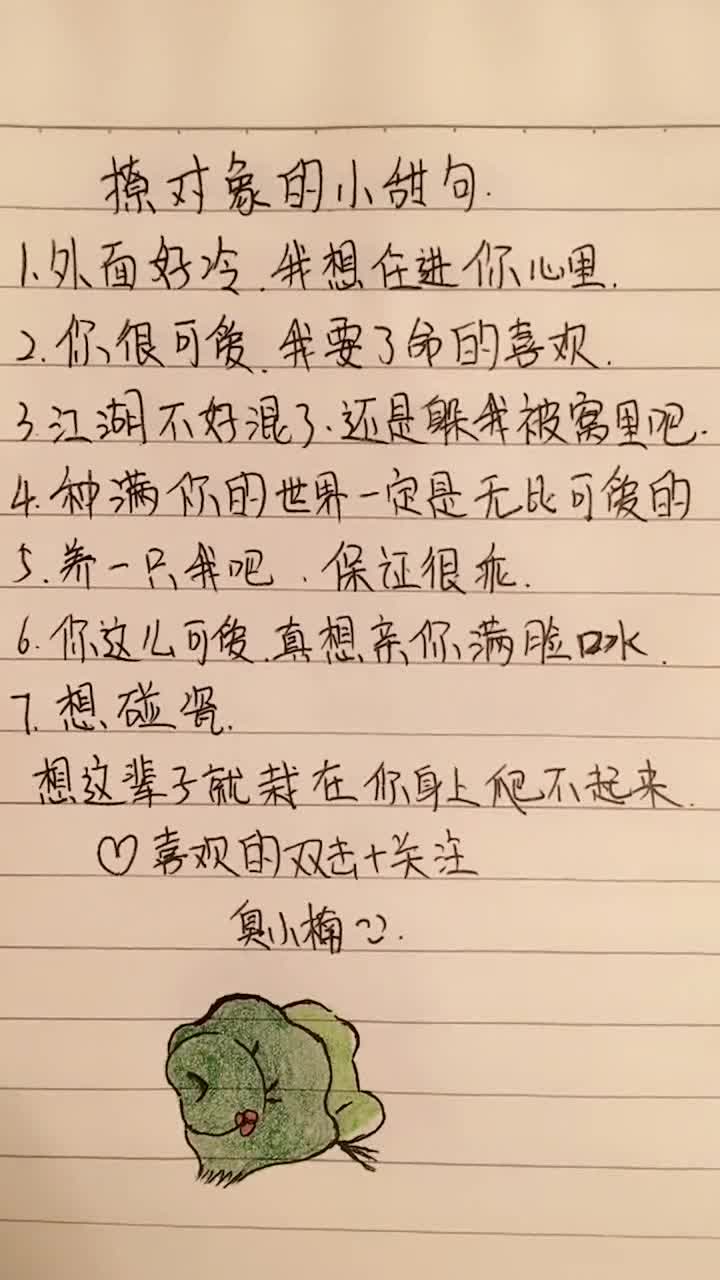 撩对象的小甜句.
1.外面好冷.我想住进你心里.
2.你很可爱.我要了命的喜欢.
3.江湖不好混了.还是躲我被窝里吧.
4.种满你的世界一定是无比可爱的
5.养一只我吧.保证很乖.
6.你这么可爱.真想亲你满脸口水.
7.想碰瓷.
想这辈子就栽在你身上爬不起来.
♡喜欢的双击+关注
臭小楠